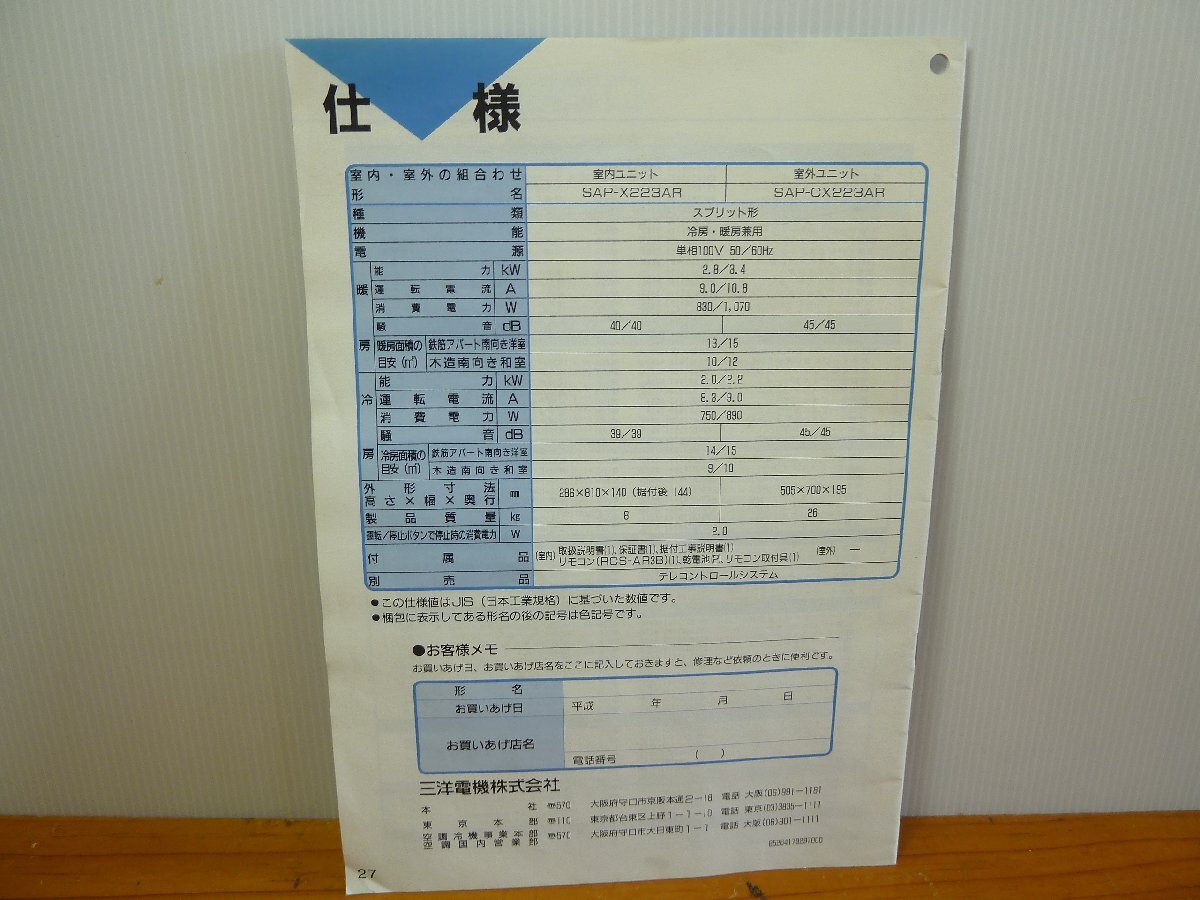 仕様
室内・室外の組合わせ 室内ユニット 室外ユニット
形名 SAP-X223AR SAP-CX223AR
種類 スプリット形
機能 冷房・暖房兼用
電源 単相100V 50/60Hz
暖房
能力 kW 2.8/3.4
運転電流 A 9.0/10.8
消費電力 W 830/1,070
騒音 dB 40/40 45/45
暖房面積の目安(㎡) 鉄筋アパート南向き洋室 13/15
木造南向き和室 10/12
冷房
能力 kW 2.0/2.2
運転電流 A 8.3/9.0
消費電力 W 750/890
騒音 dB 39/39 45/45
冷房面積の目安(㎡) 鉄筋アパート南向き洋室 14/15
木造南向き和室 9/10
外形寸法 高さ×幅×奥行 mm 286×810×140(据付後144) 505×700×195
製品質量 kg 8 26
運転/停止ボタンで停止時の消費電力 W 2.0
付属品 (室内) 取扱説明書(1)、保証書(1)、据付工事説明書(1) (室外) ―
リモコン(RCS-AR3B)(1)、乾電池2、リモコン取付具(1)
別売品 テレコントロールシステム
●この仕様値はJIS(日本工業規格)に基づいた数値です。
●梱包に表示してある形名の後の記号は色記号です。
●お客様メモ
お買いあげ日、お買いあげ店名をここに記入しておきますと、修理など依頼のときに便利です。
形名
お買いあげ日 平成 年 月 日
お買いあげ店名
電話番号 ( )
三洋電機株式会社
本社 〒570 大阪府守口市京阪本通2-18 電話 大阪(06)991-1181
東京本部 〒110 東京都台東区上野1-1-10 電話 東京(03)3835-1111
空調冷機事業本部 〒570 大阪府守口市大日東町1-1 電話 大阪(06)901-1111
空調国内営業部
27